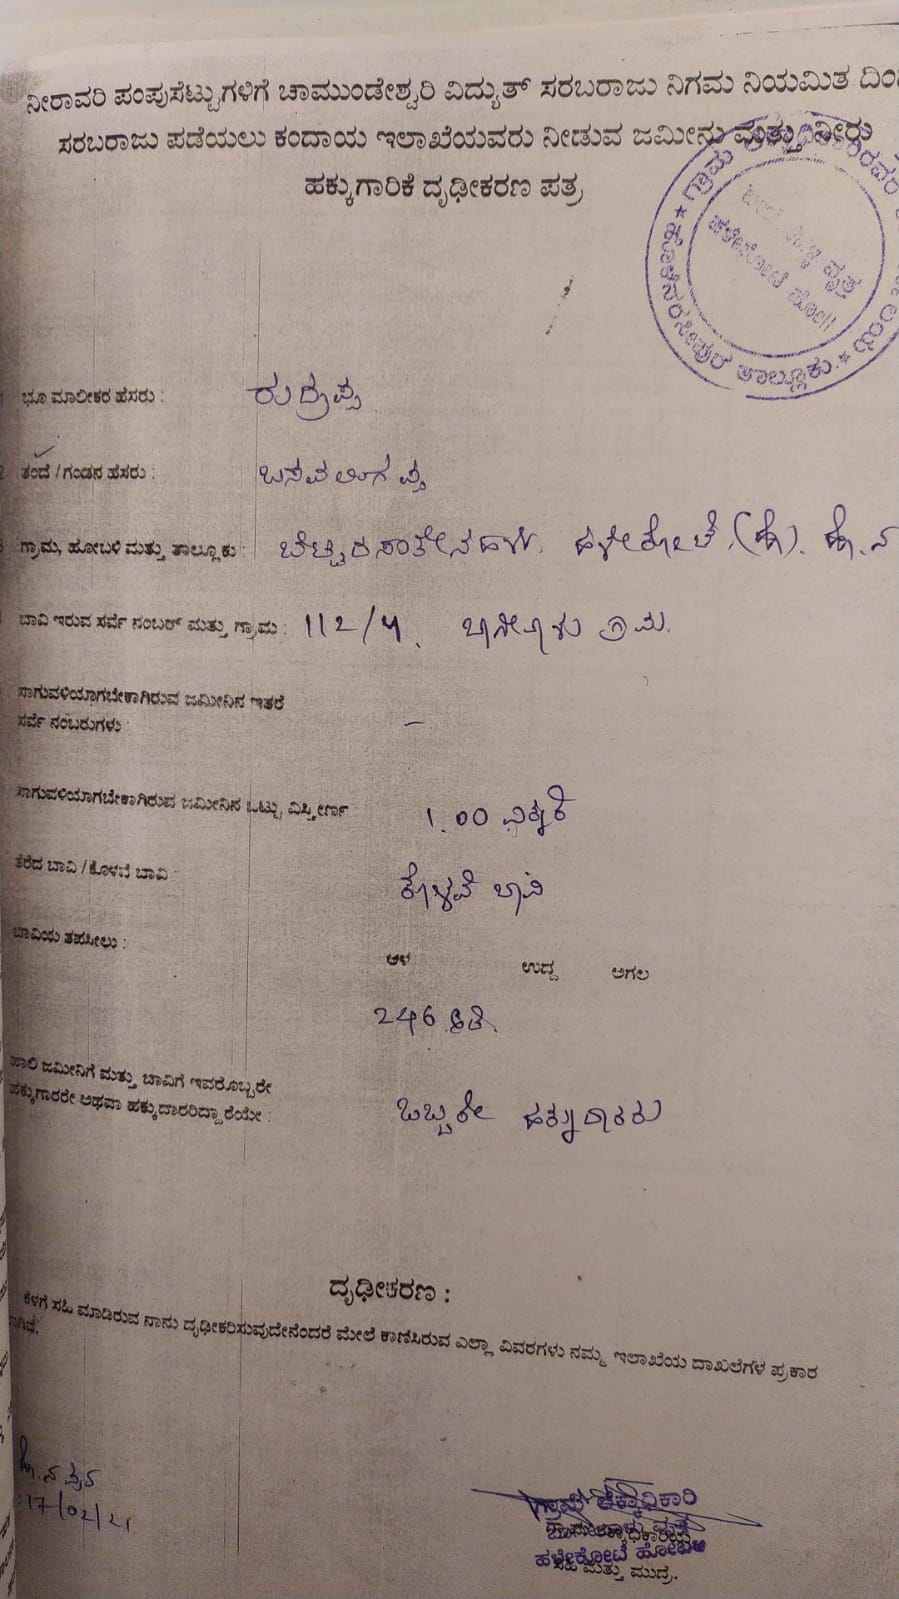 ನೀರಾವರಿ ಪಂಪುಸೆಟ್ಟುಗಳಿಗೆ ಚಾಮುಂಡೇಶ್ವರಿ ವಿದ್ಯುತ್ ಸರಬರಾಜು ನಿಗಮ ನಿಯಮಿತ ದಿಂದ
ಸರಬರಾಜು ಪಡೆಯಲು ಕಂದಾಯ ಇಲಾಖೆಯವರು ನೀಡುವ ಜಮೀನು ಮತ್ತು ನೀರು
ಹಕ್ಕುಗಾರಿಕೆ ದೃಢೀಕರಣ ಪತ್ರ
ಗ್ರಾಮ
ವೃತ್ತ
ಹಳೇಕೋಟೆ ಹೋ||
* ಹೊಳೆನರಸೀಪುರ ತಾಲ್ಲೂಕು. *
ಭೂ ಮಾಲೀಕರ ಹೆಸರು : ರುದ್ರಪ್ಪ
ತಂದೆ / ಗಂಡನ ಹೆಸರು : ಬಸವಲಿಂಗಪ್ಪ
ಗ್ರಾಮ, ಹೋಬಳಿ ಮತ್ತು ತಾಲ್ಲೂಕು : ಹಳೇಕೋಟೆ (ಹೋ). ಹೊ. ನ
ಬಾವಿ ಇರುವ ಸರ್ವೆ ನಂಬರ್ ಮತ್ತು ಗ್ರಾಮ : 112/4,
ಸಾಗುವಳಿಯಾಗಬೇಕಾಗಿರುವ ಜಮೀನಿನ ಇತರೆ
ಸರ್ವೆ ನಂಬರುಗಳು : –
ಸಾಗುವಳಿಯಾಗಬೇಕಾಗಿರುವ ಜಮೀನಿನ ಒಟ್ಟು ವಿಸ್ತೀರ್ಣ 1.00 ಎಕ್ಕರೆ
ತೆರೆದ ಬಾವಿ / ಕೊಳವೆ ಬಾವಿ : ಕೊಳವೆ ಬಾವಿ
ಬಾವಿಯ ತಪಸೀಲು :
ಆಳ ಉದ್ದ ಅಗಲ
246 ಅಡಿ.
ಹಾಲಿ ಜಮೀನಿಗೆ ಮತ್ತು ಬಾವಿಗೆ ಇವರೊಬ್ಬರೇ
ಹಕ್ಕುಗಾರರೇ ಅಥವಾ ಹಕ್ಕುದಾರರಿದ್ದಾರೆಯೇ : ಒಬ್ಬರೇ ಹಕ್ಕುದಾರರು
ದೃಢೀಕರಣ :
ಕೆಳಗೆ ಸಹಿ ಮಾಡಿರುವ ನಾನು ದೃಢೀಕರಿಸುವುದೇನೆಂದರೆ ಮೇಲೆ ಕಾಣಿಸಿರುವ ಎಲ್ಲಾ ವಿವರಗಳು ನಮ್ಮ ಇಲಾಖೆಯ ದಾಖಲೆಗಳ ಪ್ರಕಾರ
ಹೊ. ನ ಪುರ
17/02/21
ಗ್ರಾಮ ಲೆಕ್ಕಾಧಿಕಾರಿ
ವೃತ್ತ
ಹಳೇಕೋಟೆ ಹೋಬಳಿ
ಸಹಿ ಮತ್ತು ಮುದ್ರೆ.